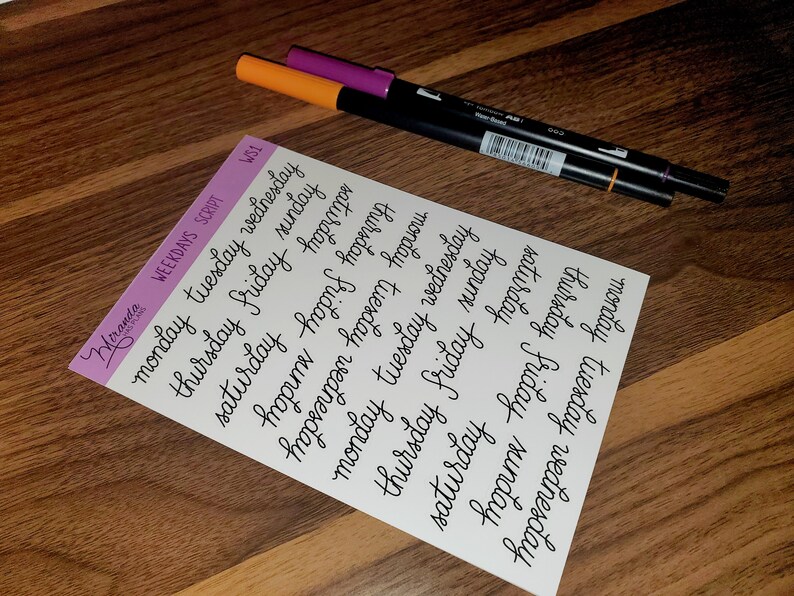 Miranda
HAS PLANS
WEEKDAYS SCRIPT
WS1
monday tuesday wednesday
thursday friday sunday
saturday
saturday
thursday friday sunday
monday tuesday wednesday
monday tuesday wednesday
thursday friday sunday
saturday
saturday
thursday friday sunday
monday tuesday wednesday
Water-Based
665